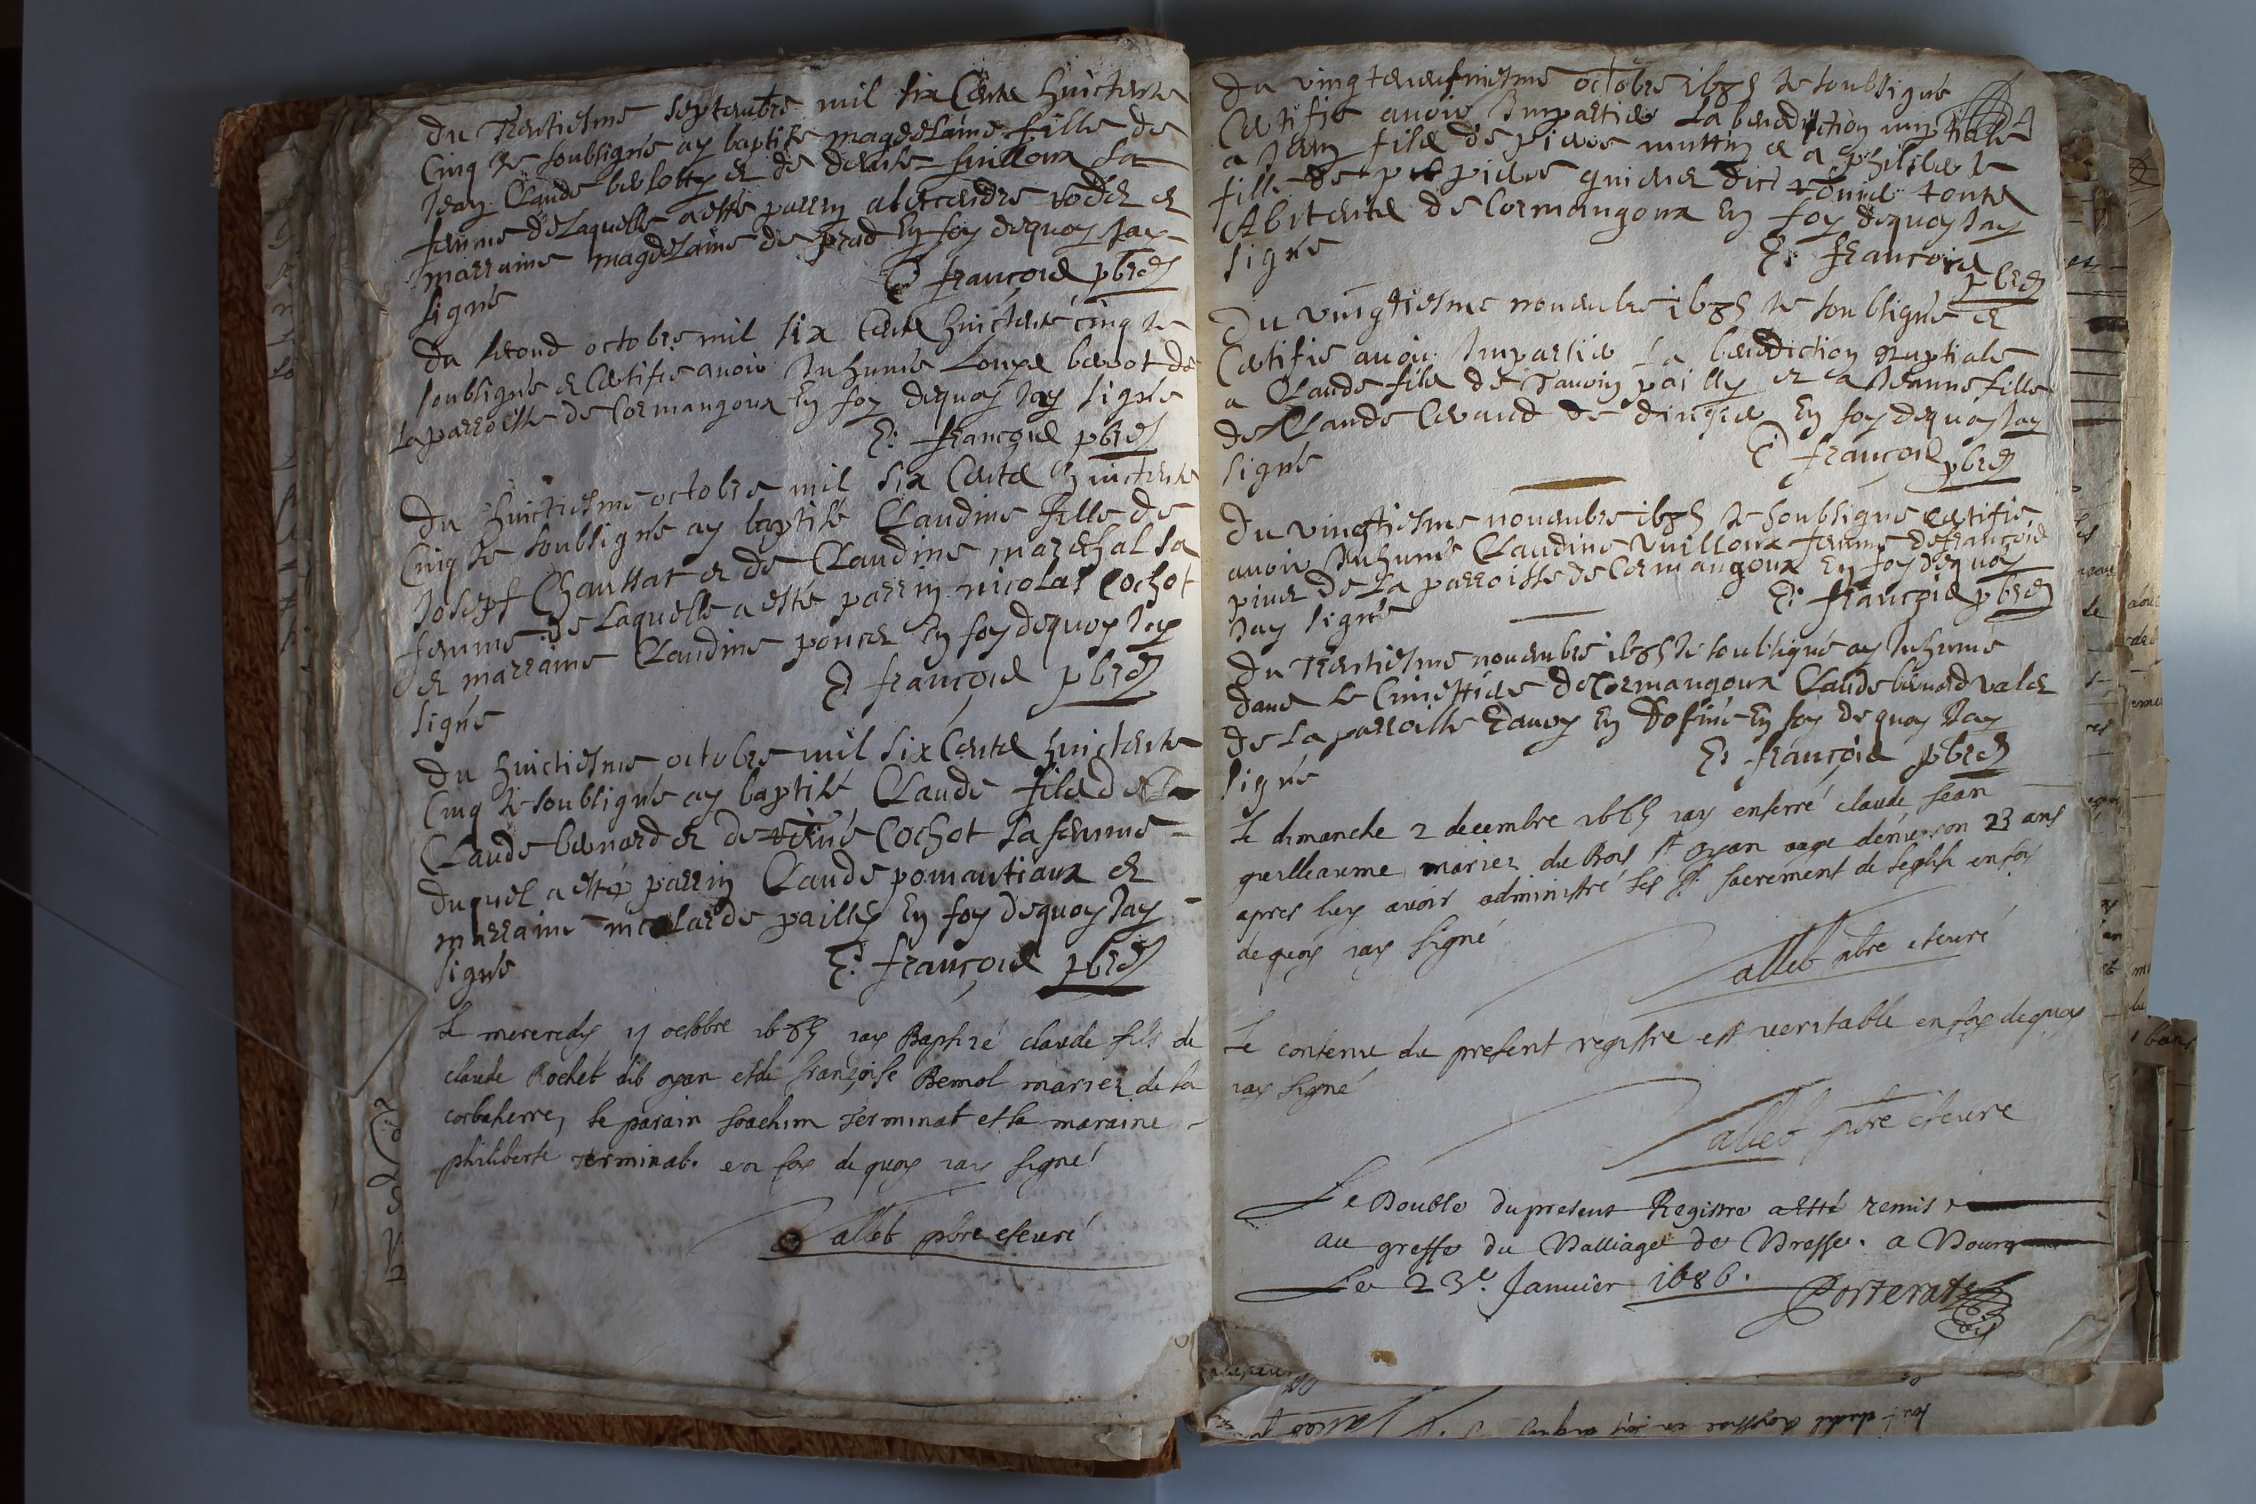 Du Trentiesme septembre mil six Cents huictante
Cinq Je soubsigné ay baptisé magdelaine fille de
Jean Claude berlotty et de denise Vuilloux sa
femme de laquelle a esté parrin alexcendre rodet et
marraine magdelaine de prad En foy dequoy Jay
signé
E: françois pbre
Du second octobre mil six Cents huictante cinq Je
soubsigné et Certifie avoir Inhumé Louys benot de
la parroisse de Cormangoux En foy dequoy Jay signé
E: françois pbre
Du huictiesme octobre mil six Cents huictante
Cinq Je soubsigné ay baptisé Claudine fille de
Josepf Chaussat et de Claudine mareschal sa
femme de laquelle a esté parrin nicolas Cochot
et marraine Claudine poncet En foy dequoy Jay
signé
E: françois pbre
Du huictiesme octobre mil six Cents huictante
Cinq Je soubsigné ay baptisé Claude fils de
Claude benard et de Cochot sa femme
duquel a esté parrin Claude pomantiaux et
marraine nicolarde pailly En foy dequoy Jay
signé
E: françois pbre
Le mercredy 17 octobre 1685 jay Baptizé claude fils de
claude Rochet dit oyan et de françoise Bemol mariez de la
corbaterre, le parain Joachim Terminat et la maraine
philiberte terminat. en foy de quoy jay signé
allet pbre et curé
Du vingt neufviesme octobre 1685 Je soubsigné
Certifie avoir Imparties La benediction nuptiale
a Jean fils de pierre muttin et a philiberte
fille de pierre quinet dict touts
Abitants de Cormangoux En foy dequoy Jay
signé
E: françois
pbre
Du vingtiesme novembre 1685 Je soubsigné et
Certifie avoir Impartie La benediction Nuptiale
a Claude fils de Tauvin pailly et a Jeanne fille
de Claude Cevaud de dingier En foy dequoy Jay
signé
E françois pbre
Du vingtiesme novembre 1685 Je soubsigné certifie
avoir Inhumé Claudine Vuilloux femme de françois
pivet de la parroisse de Cormangoux En foy dequoy
Jay signé
E: françois pbre
Du Trentiesme novembre 1685 Je soubsigné ay Inhumé
dans Le Cimettier de Cormangoux Claude benard valet
de La parroisse En Dofiné En foy dequoy Jay
signé
E: françois pbre
Le dimanche 2 decembre 1685 jay enterré claude Jean
guilleaume mariez du Bois St oyan aagé denviron 23 ans
apres luy avoir administré les Sts sacrement de leglise en foy
de quoy jay signé
allet pbre et curé
Le contenu du present registre est veritable en foy de quoy
jay signé
allet pbre et curé
Le Double du present Registre a esté remis
au greffe du Balliage de Bresse. a Bourg
Le 23e. Janvier 1686. Porterat